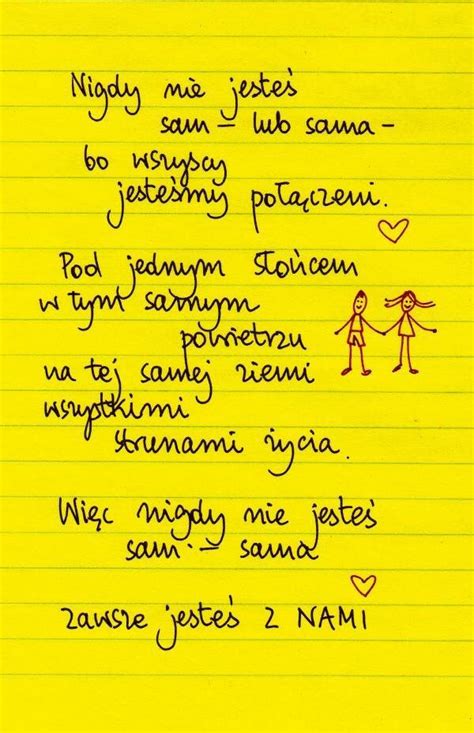 Nigdy nie jesteś
sam – lub sama –
bo wszyscy
jesteśmy połączeni.
Pod jednym słońcem
w tym samym
powietrzu
na tej samej ziemi
wszystkimi
strunami życia.
Więc nigdy nie jesteś
sam – sama
zawsze jesteś z NAMI